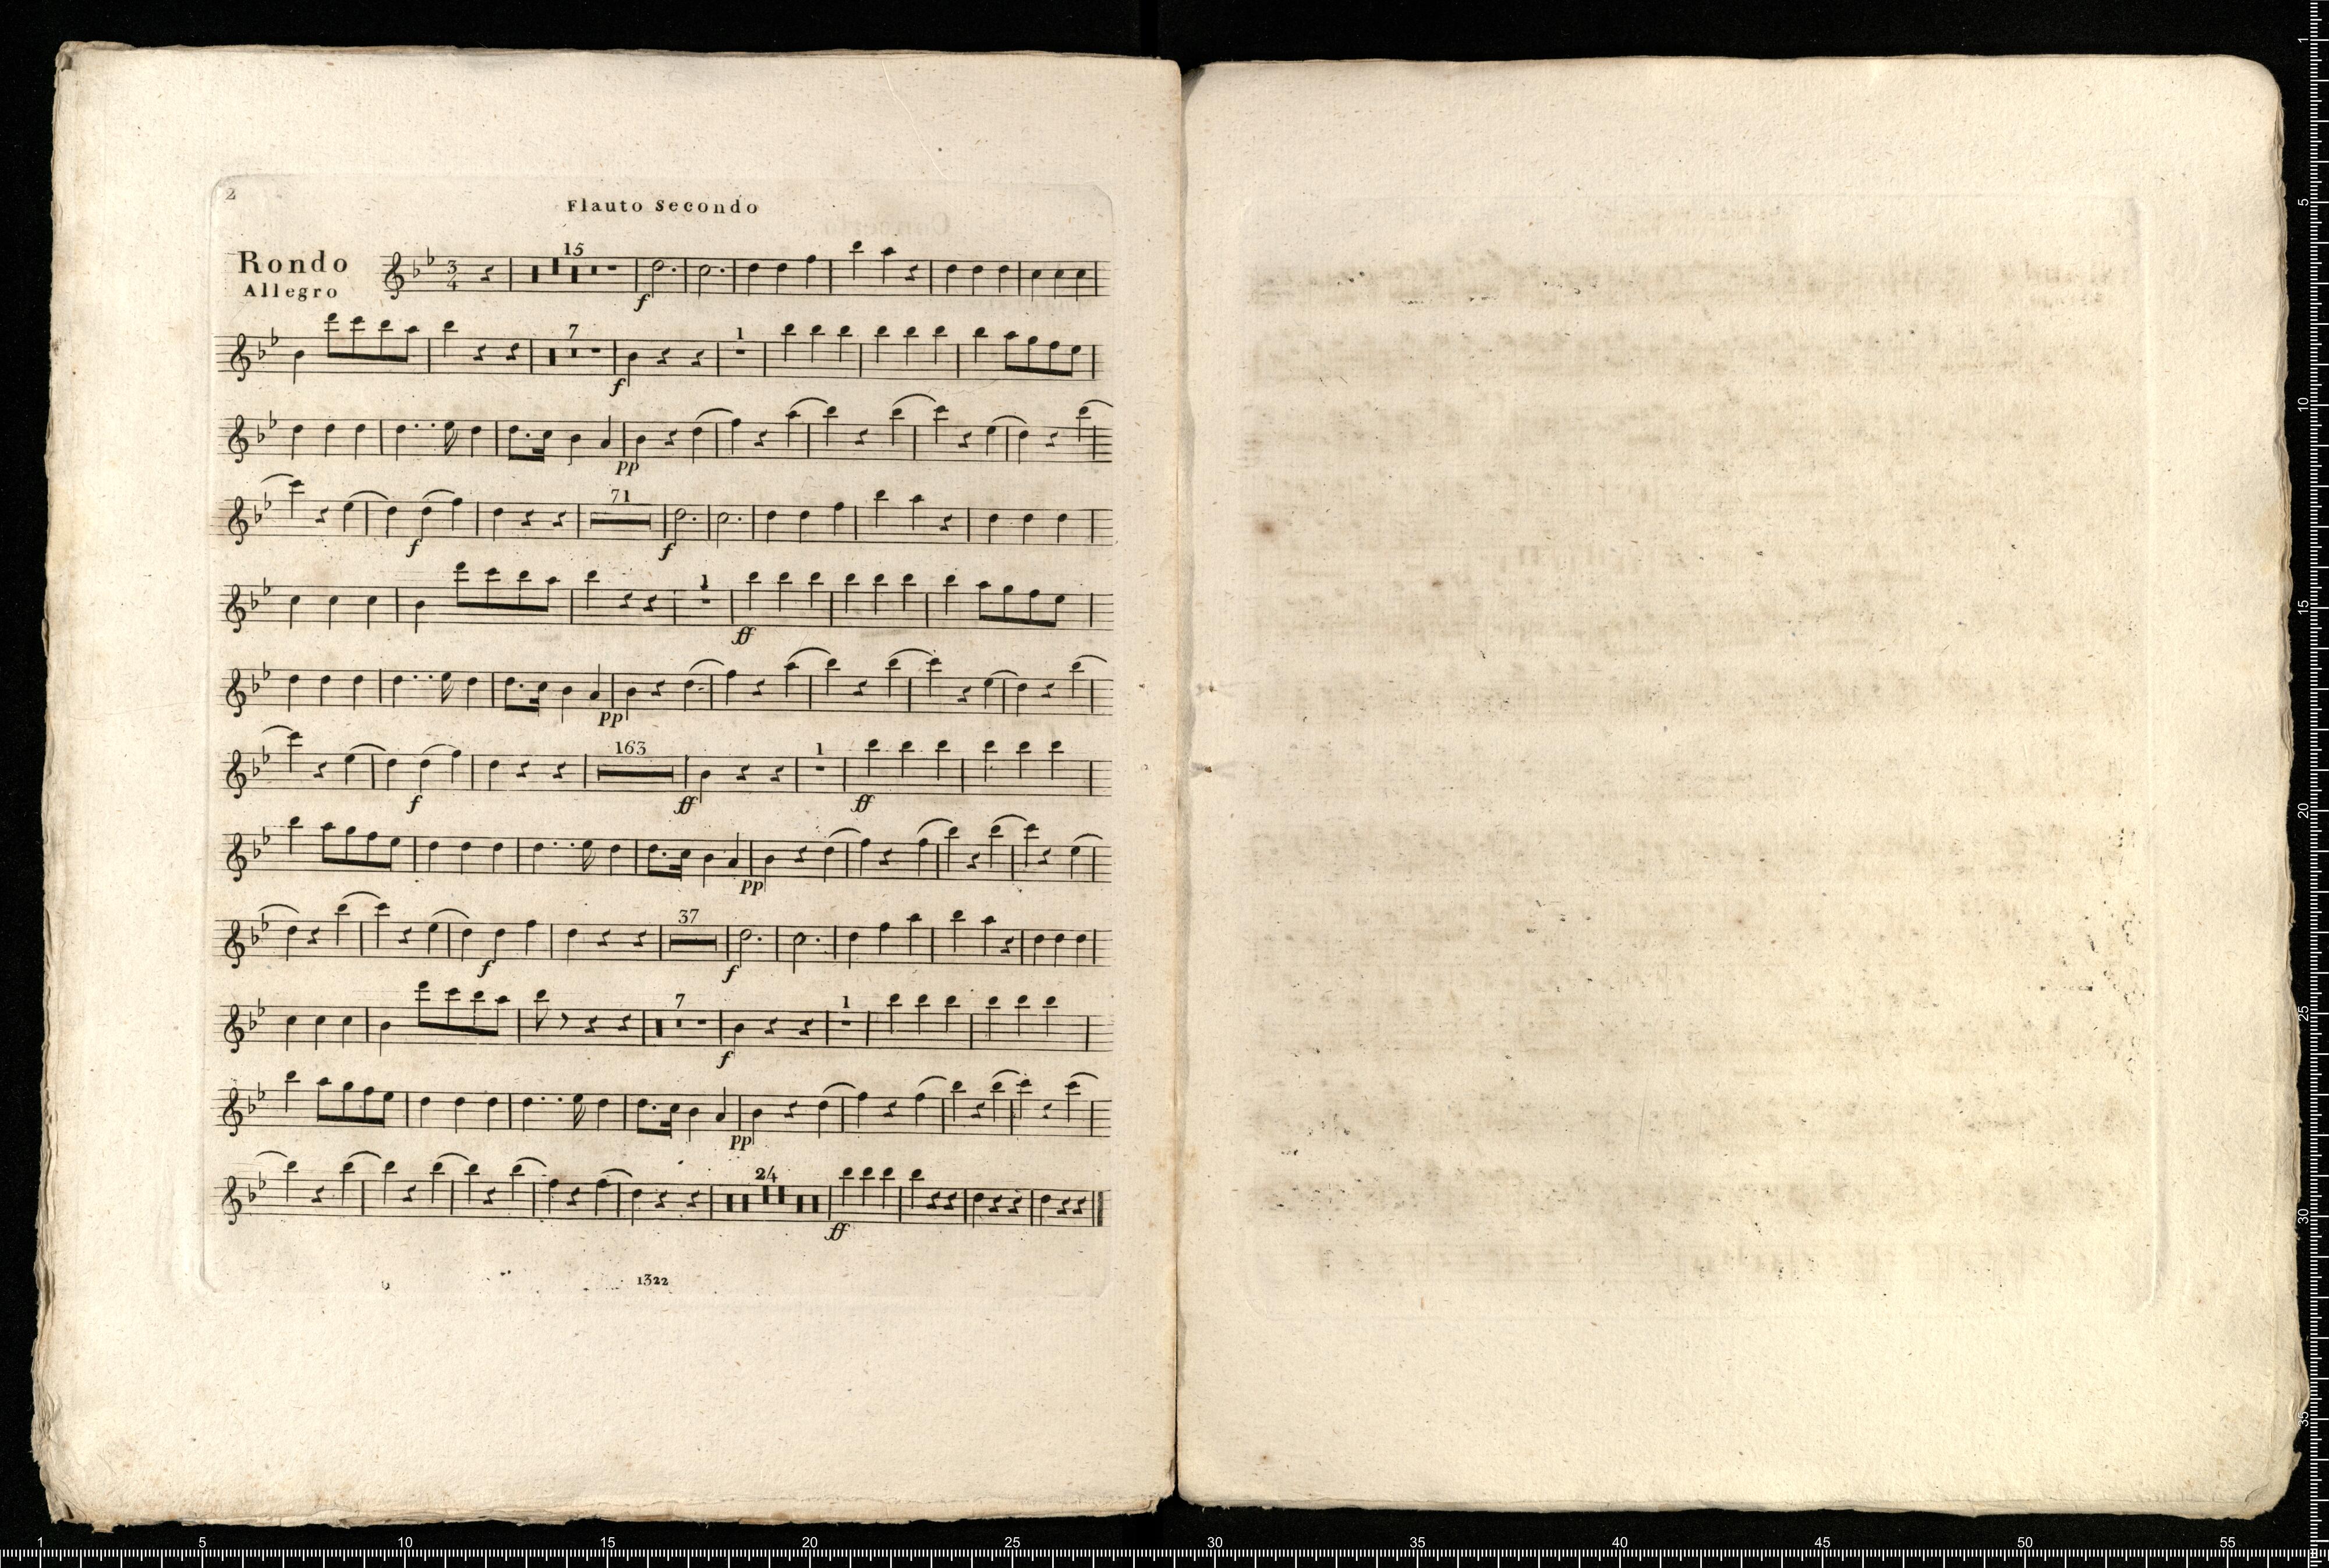 2
Flauto Secondo
Rondo
Allegro
3
4
15
f
7
1
f
pp
71
f
f
1
ff
pp
163
1
f
ff
ff
pp
37
f
f
7
1
f
pp
24
ff
1322
1
5
10
15
20
25
30
35
1
5
10
15
20
25
30
35
40
45
50
55